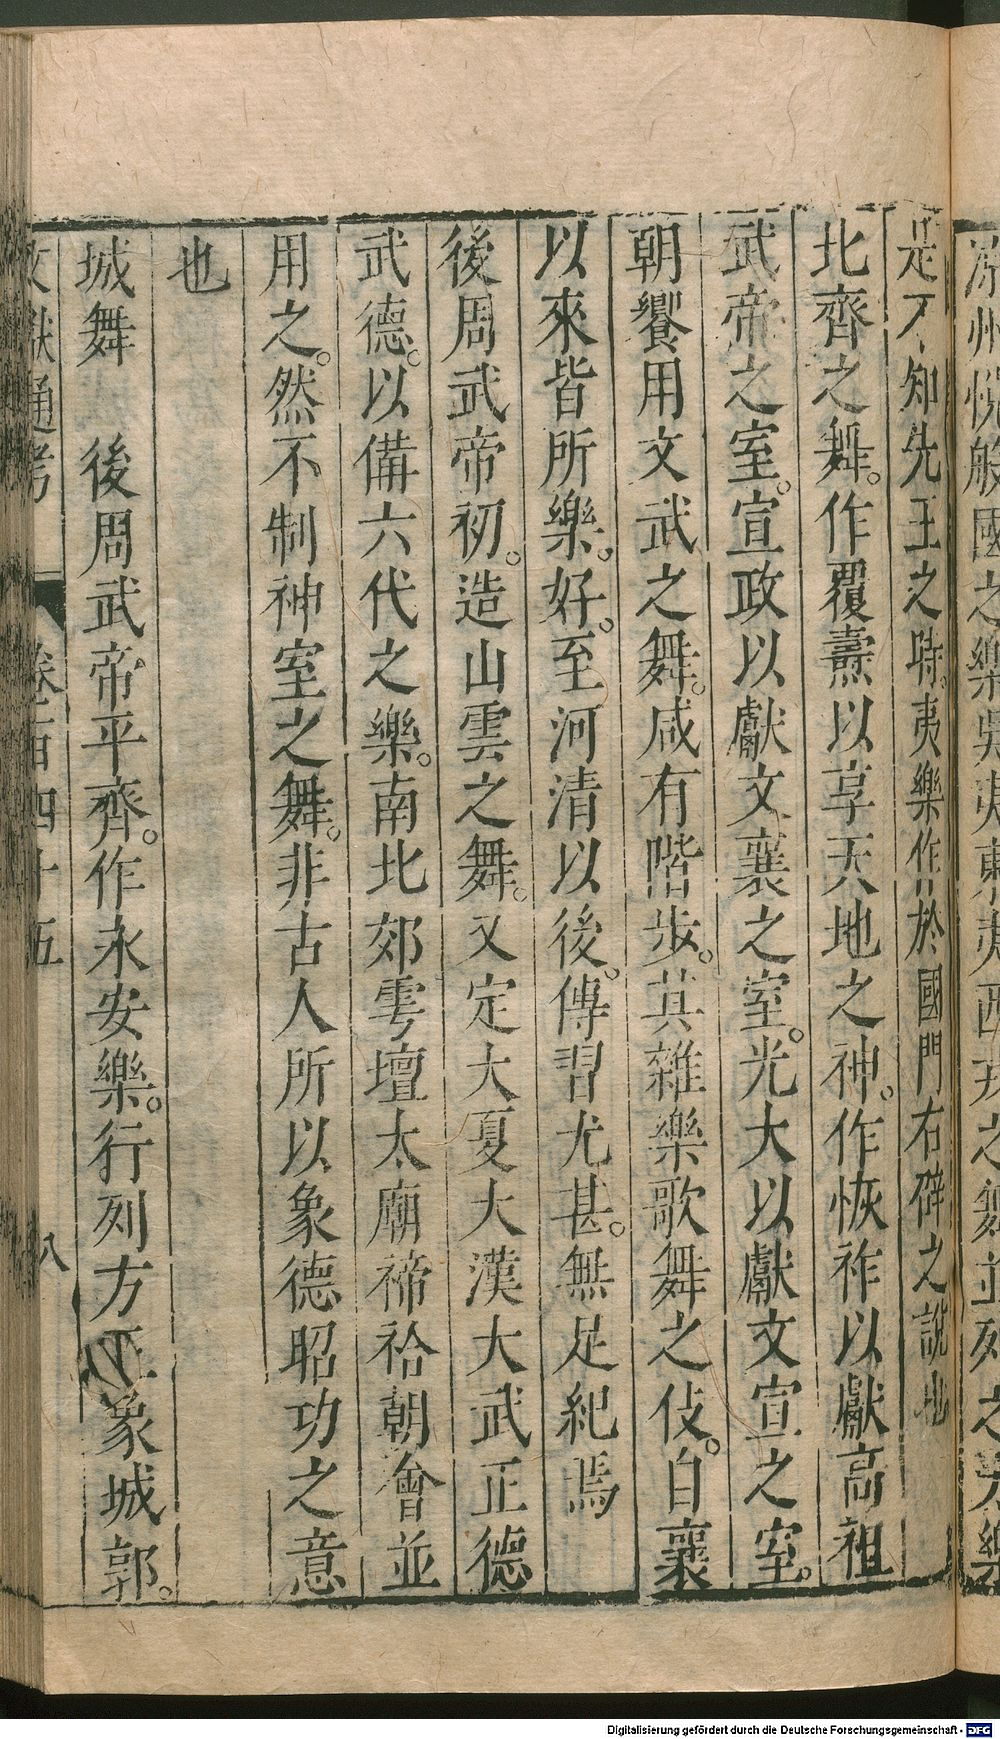 涼州悅般國之樂
是不知先王之時夷樂作於國門右辟之說也
北齊之舞。作覆燾以享天地之神。作恢祚以獻高祖
武帝之室。宣政以獻文襄之室。光大以獻文宣之室。
朝饗用文武之舞。咸有階步。其雜樂歌舞之伎。自襄
以來皆所樂。好。至河清以後。傳習尤甚。無足紀焉
後周武帝初。造山雲之舞。又定大夏大漢大武正德
武德。以備六代之樂。南北郊雩壇太廟禘祫朝會並
用之。然不制神室之舞。非古人所以象德昭功之意
也
城舞　後周武帝平齊。作永安樂。行列方正象城郭。
文獻通考　卷百四十五　八
Digitalisierung gefördert durch die Deutsche Forschungsgemeinschaft - DFG